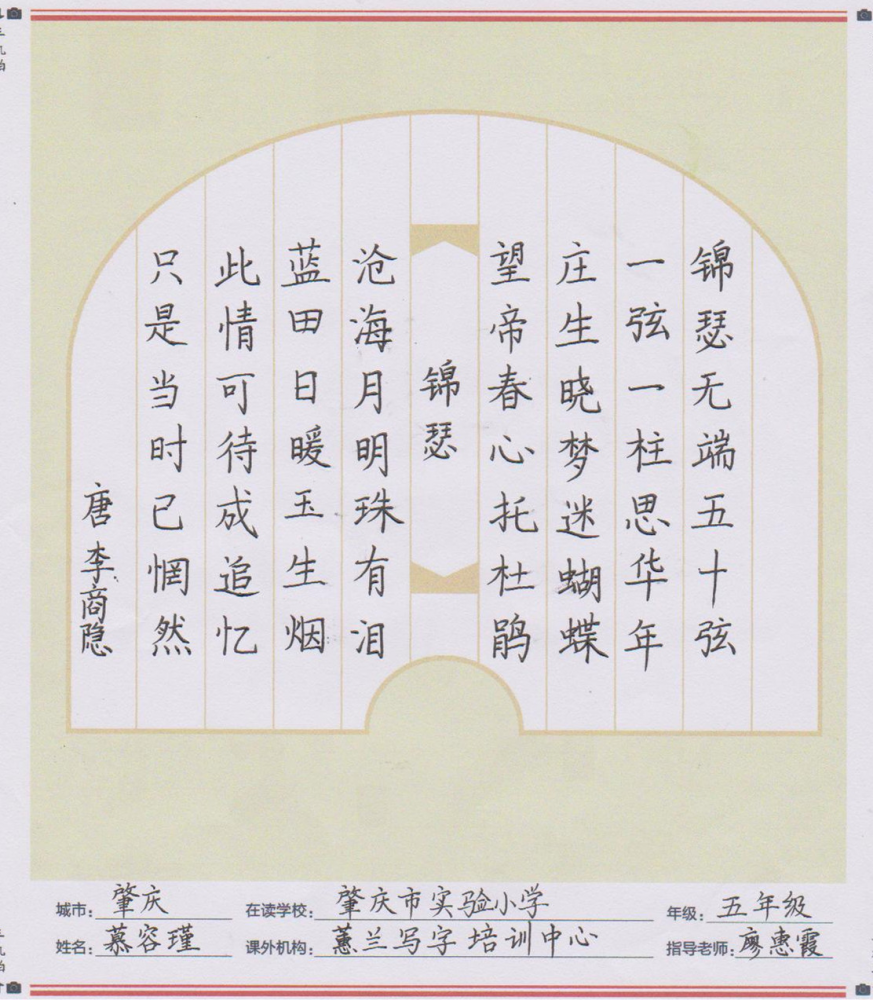 锦瑟无端五十弦
一弦一柱思华年
庄生晓梦迷蝴蝶
望帝春心托杜鹃
锦瑟
沧海月明珠有泪
蓝田日暖玉生烟
此情可待成追忆
只是当时已惘然
唐 李商隐
城市: 肇庆
在读学校: 肇庆市实验小学
年级: 五年级
姓名: 慕容瑾
课外机构: 蕙兰写字培训中心
指导老师: 廖惠霞